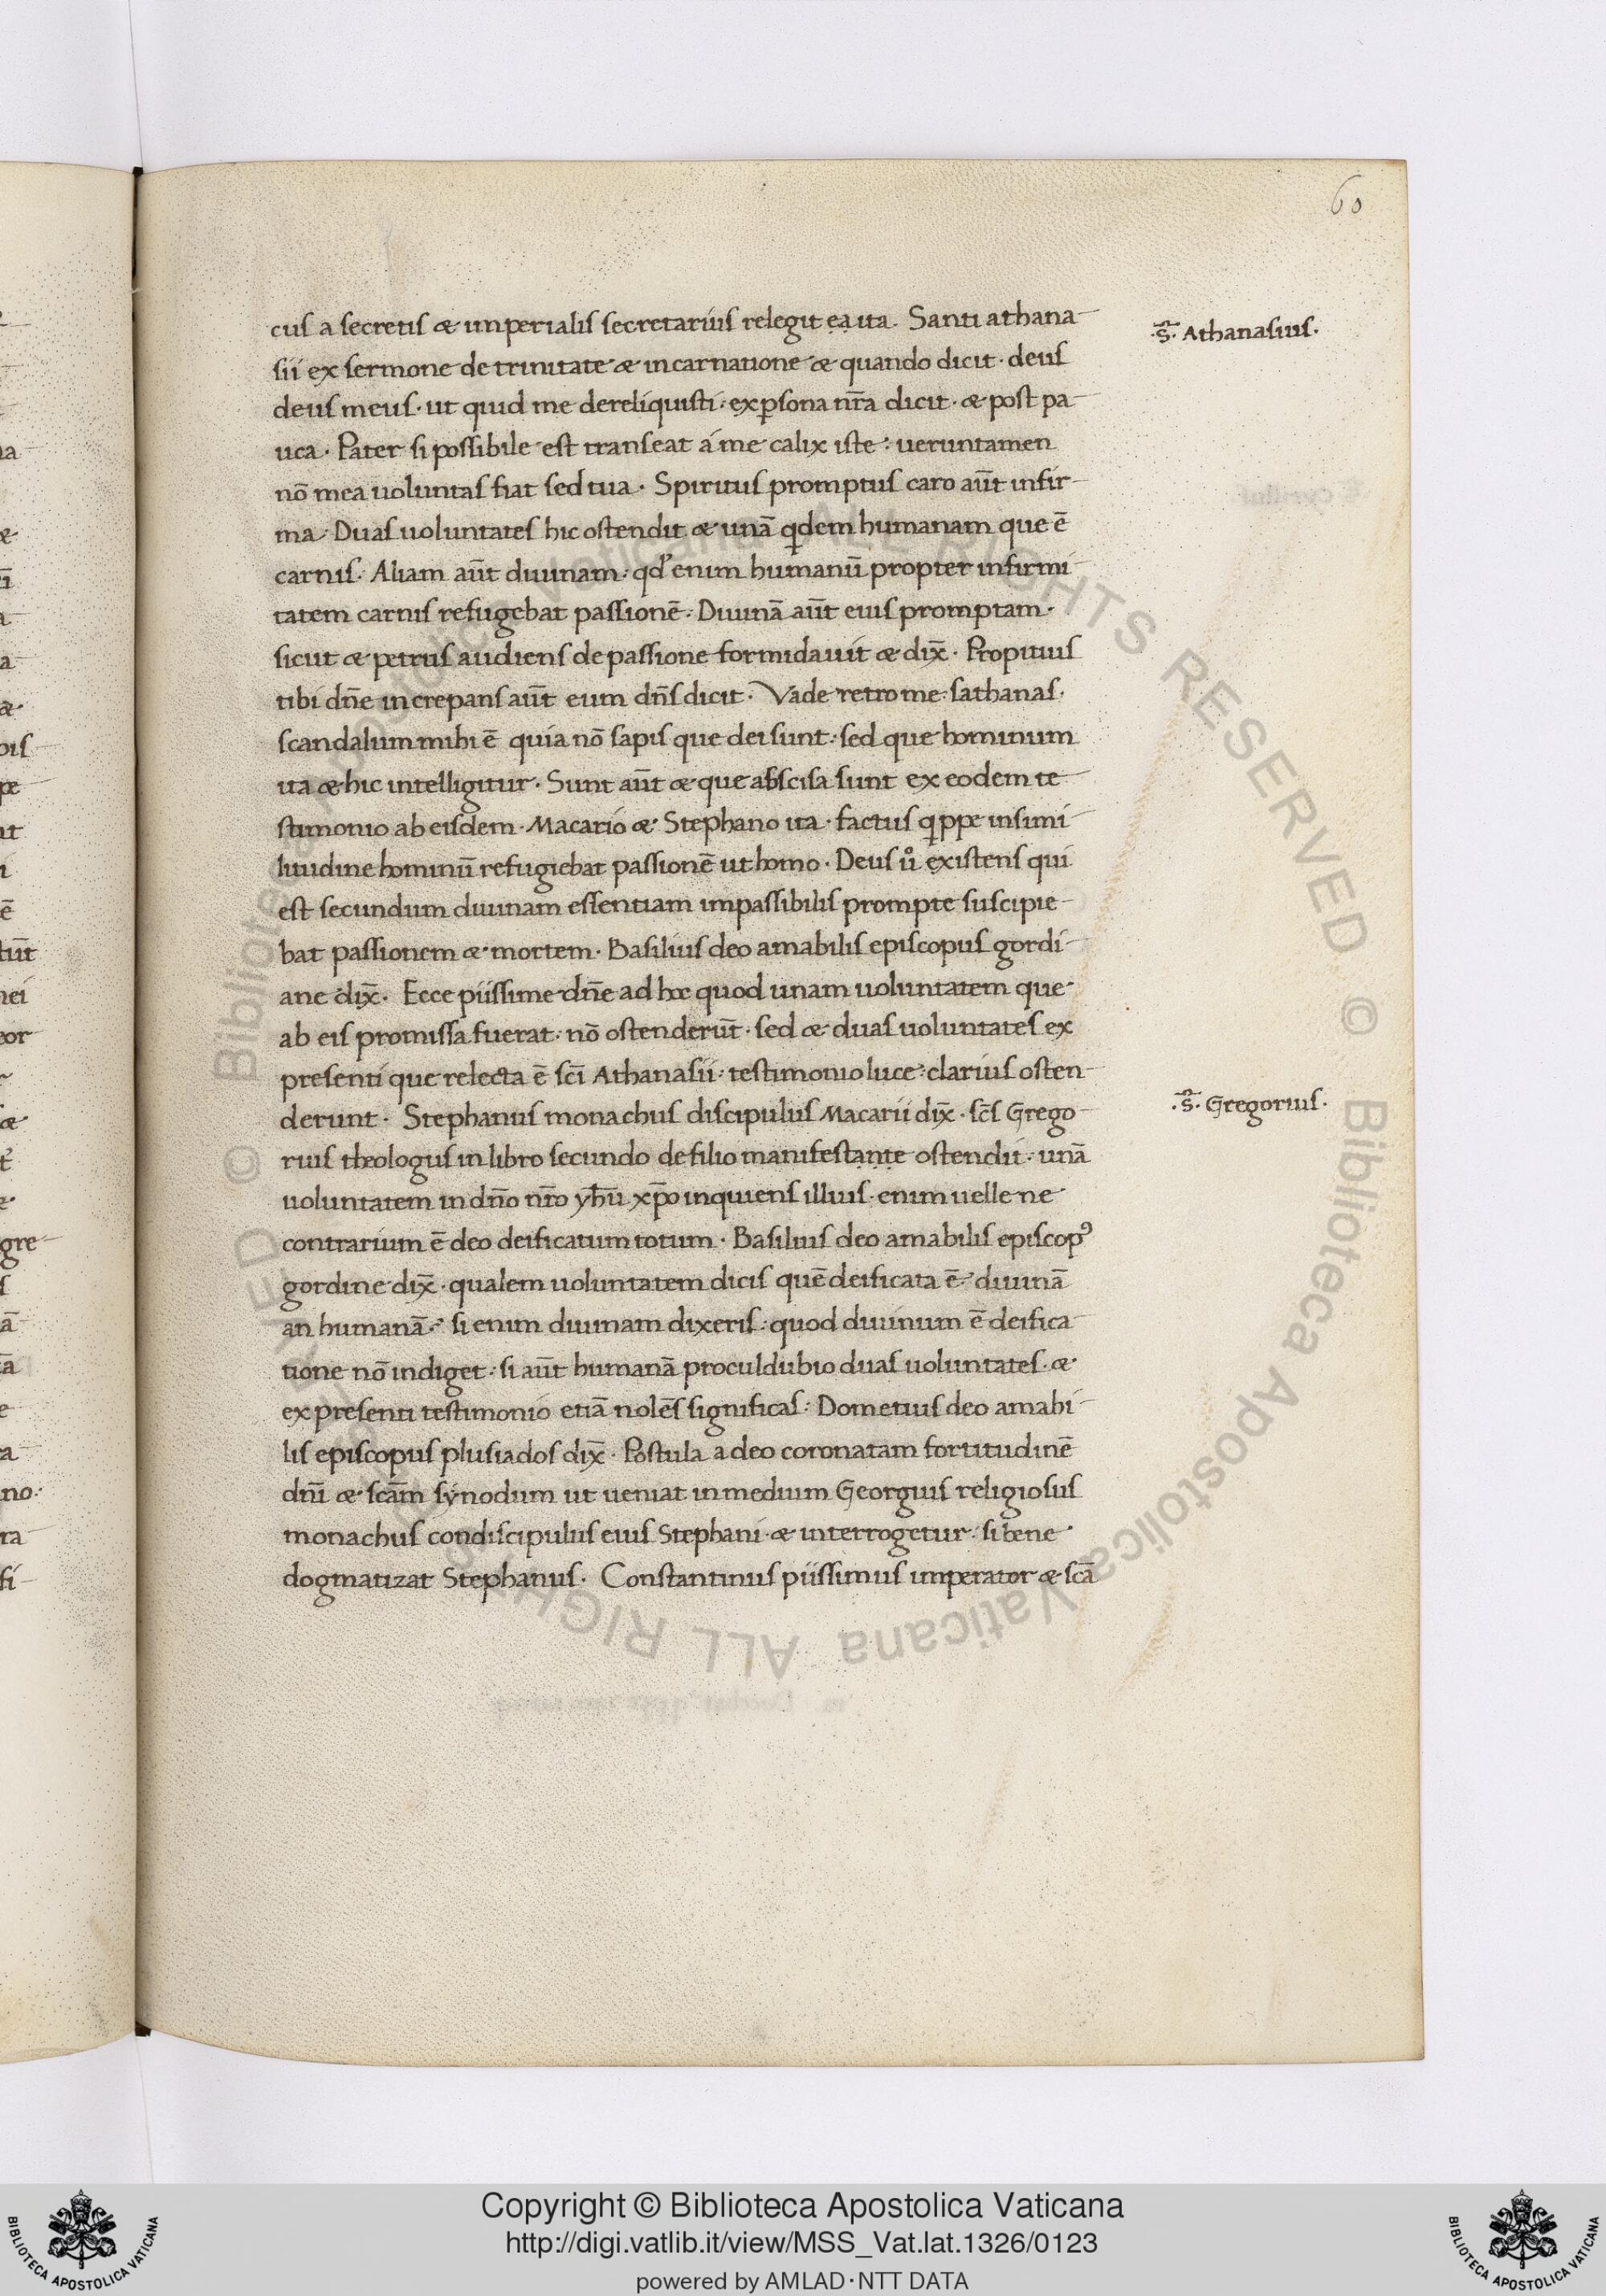 60
cus a secretis & imperialis secretarius relegit ea ita. Santi athana
sii ex sermone de trinitate & incarnatione & quando dicit · deus
deus meus · ut quid me dereliquisti · ex ꝑsona nr̄a dicit · & post pa
uca · Pater si possibile est transeat á me calix iste : ueruntamen
nō mea uoluntas fiat sed tua · Spiritus promptus caro aūt infir
ma · Duas uoluntates hic ostendit & unā qdem humanam que ē
carnis · Aliam aūt diuinam · qd' enim humanū propter infirmi
tatem carnis refugebat passionē · Diuinā aūt eius promptam ·
sicut & petrus audiens de passione formidauit & dix̄ · Propitius
tibi dn̄e increpans aūt eum dn̄s dicit · Vade retro me sathanas ·
scandalum mihi ē quia nō sapis que dei sunt : sed que hominum
ita & hic intelligitur · Sunt aūt & que abscisa sunt ex eodem te
stimonio ab eisdem · Macario & Stephano ita · factus qppe in simi
litudine hominū refugiebat passionē ut homo · Deus uº existens qui
est secundum diuinam essentiam impassibilis prompte suscipie
bat passionem & mortem · Basilius deo amabilis episcopus gordi
ane dix̄ · Ecce piissime dn̄e ad hoc quod unam uoluntatem que
ab eis promissa fuerat : nō ostenderūt · sed & duas uoluntates ex
presenti que relecta ē sc̄i Athanasii : testimonio luce : clarius osten
derunt · Stephanus monachus discipulus Macarii dix̄ · sc̄s Grego
rius theologus in libro secundo de filio manifestante ostendit · unā
uoluntatem in dn̄o nr̄o yhū xp̄o inquiens illius · enim uelle ne
contrarium ē deo deificatum totum · Basilius deo amabilis episcopꝰ
gordine dix̄ · qualem uoluntatem dicis quē deificata ē diuinā
an humanā · si enim diuinam dixeris : quod diuinum ē deifica
tione nō indiget : si aūt humanā proculdubio duas uoluntates · &
ex presenti testimonio etiā nolēs significas : Dometius deo amabi
lis episcopus plusiados dix̄ · Postula a deo coronatam fortitudinē
dn̄i & scām synodum ut ueniat in medium Georgius religiosus
monachus condiscipulus eius Stephani & interrogetur · si bene
dogmatizat Stephanus · Constantinus piissimus imperator & scā
·S̄· Athanasius ·
·S̄· Gregorius ·
a
ei
eor
gre
no
ra
si
© Biblioteca Apostolica Vaticana ALL RIGHTS RESERVED © Biblioteca Apostolica Vaticana ALL RIGHTS RESERVED
Copyright © Biblioteca Apostolica Vaticana
http://digi.vatlib.it/view/MSS_Vat.lat.1326/0123
powered by AMLAD·NTT DATA
BIBLIOTECA APOSTOLICA VATICANA
BIBLIOTECA APOSTOLICA VATICANA